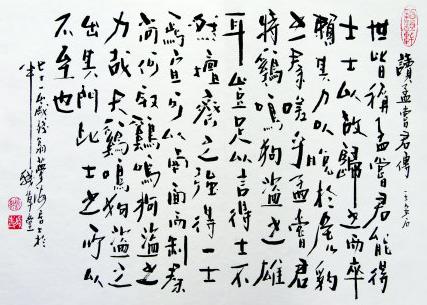 讀孟嘗君傳
世皆稱孟嘗君能得
士士以故歸之而卒
賴其力以脫於虎豹
之秦嗟乎孟嘗君
特鷄鳴狗盜之雄
耳豈足以言得士不
然擅齊之強得一士
焉宜可以南面而制秦
尚何取鷄鳴狗盜之
力哉夫鷄鳴狗盜之
出其門此士之所以
不至也